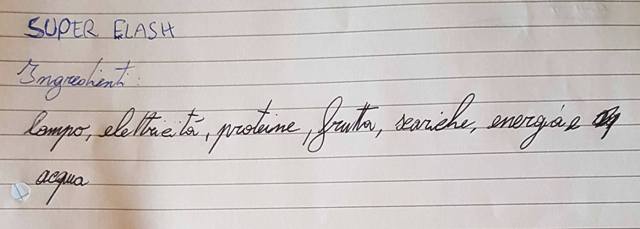 SUPER FLASH
Ingredienti:
lampo, elettricitá, proteine, frutta, scariche, energia e
acqua